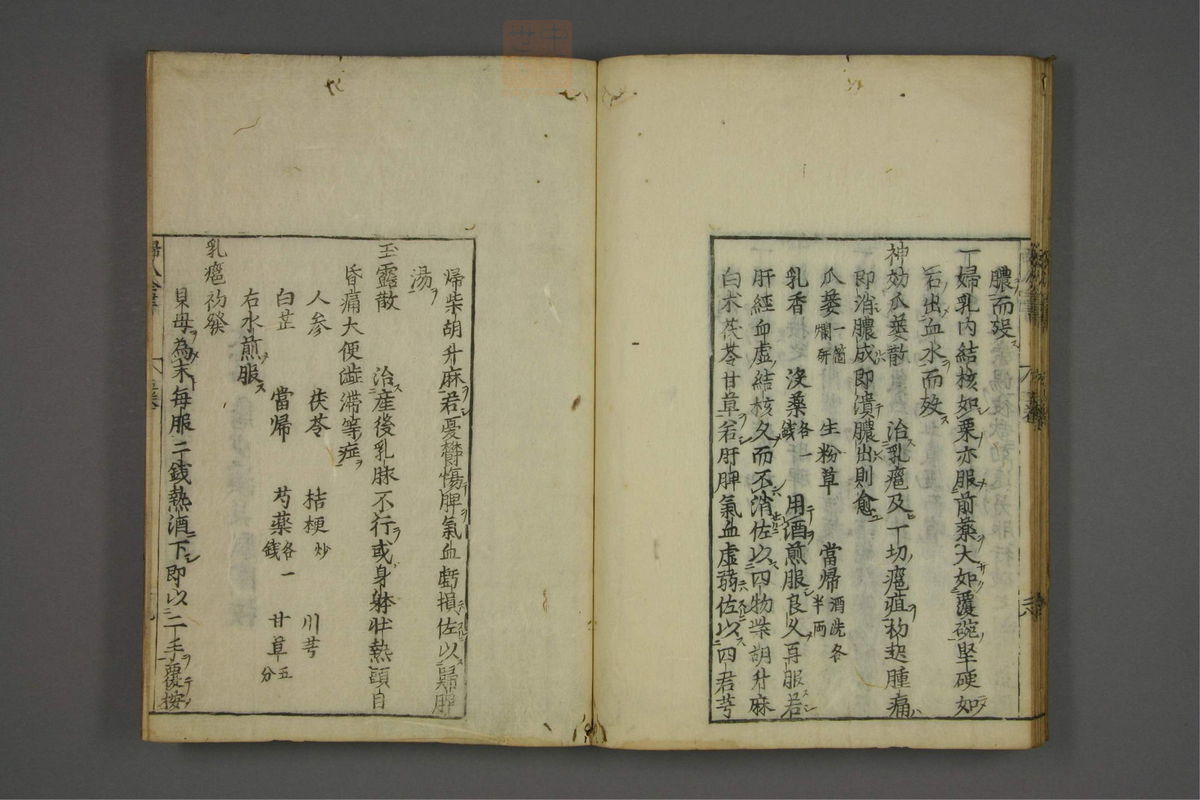 膿而㱿
一婦乳内結核如栗亦服前藥大如覆碗堅硬如
石出血水而㱿
神効瓜蔞散　治乳癰及一切癰疽初起腫痛
即消膿成即潰膿出則愈
瓜蔞一箇爛研　生粉草　當歸酒洗各半両
乳香　没藥各一錢　用酒煎服良久再服若
肝經血虚結核久而不消佐以四物柴胡升麻
白朮茯苓甘草若肝脾氣血虚弱佐以四君芎
歸柴胡升麻若憂欝傷脾氣血虧損佐以歸脾
湯
玉露散　治産後乳脉不行或身躰壮熱頭目
昏痛大便澁滞等症
人参　茯苓　桔梗炒　川芎
白芷　當歸　芍藥各一錢　甘草五分
右水煎服
乳癰初發
貝母為末每服二錢熱酒下即以二手覆按